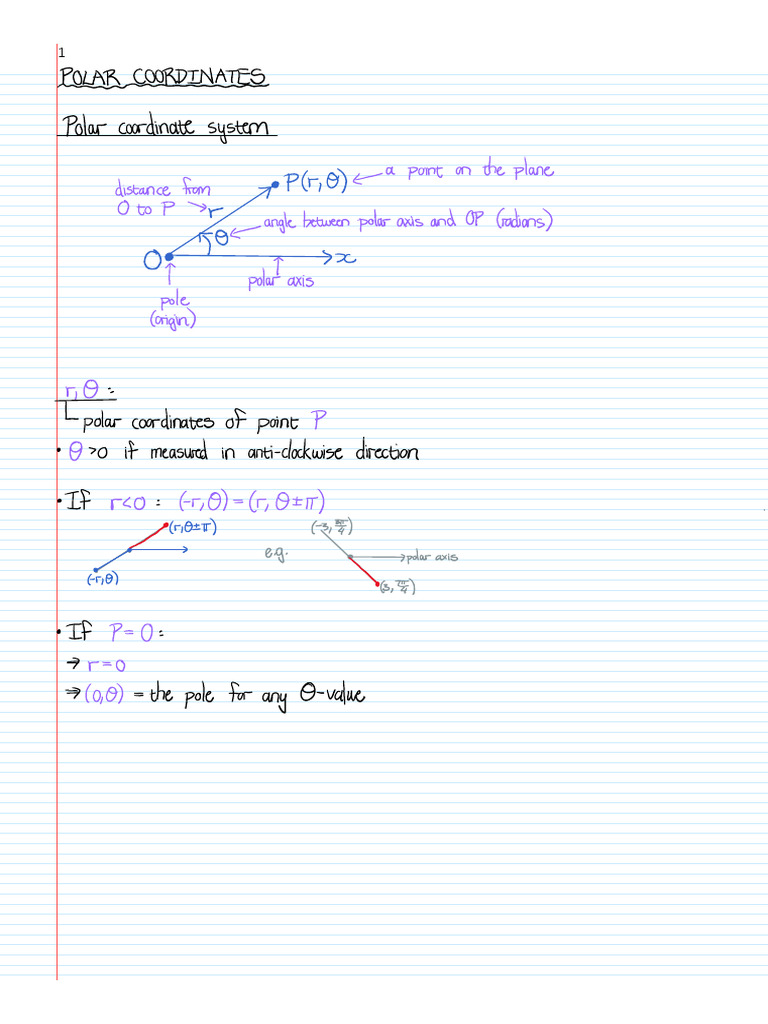 1
POLAR COORDINATES
Polar coordinate system
P(r, θ) ← a point on the plane
distance from
O to P → r
θ ← angle between polar axis and OP (radians)
O
x
polar axis
pole
(origin)
r, θ :
polar coordinates of point P
• θ >0 if measured in anti-clockwise direction
• If r<0 : (-r, θ) = (r, θ ± π)
(r, θ±π)
(-r, θ)
e.g.
(-3, 3π/4)
polar axis
(3, 7π/4)
• If P = O :
→ r = 0
⇒ (0, θ) = the pole for any θ-value